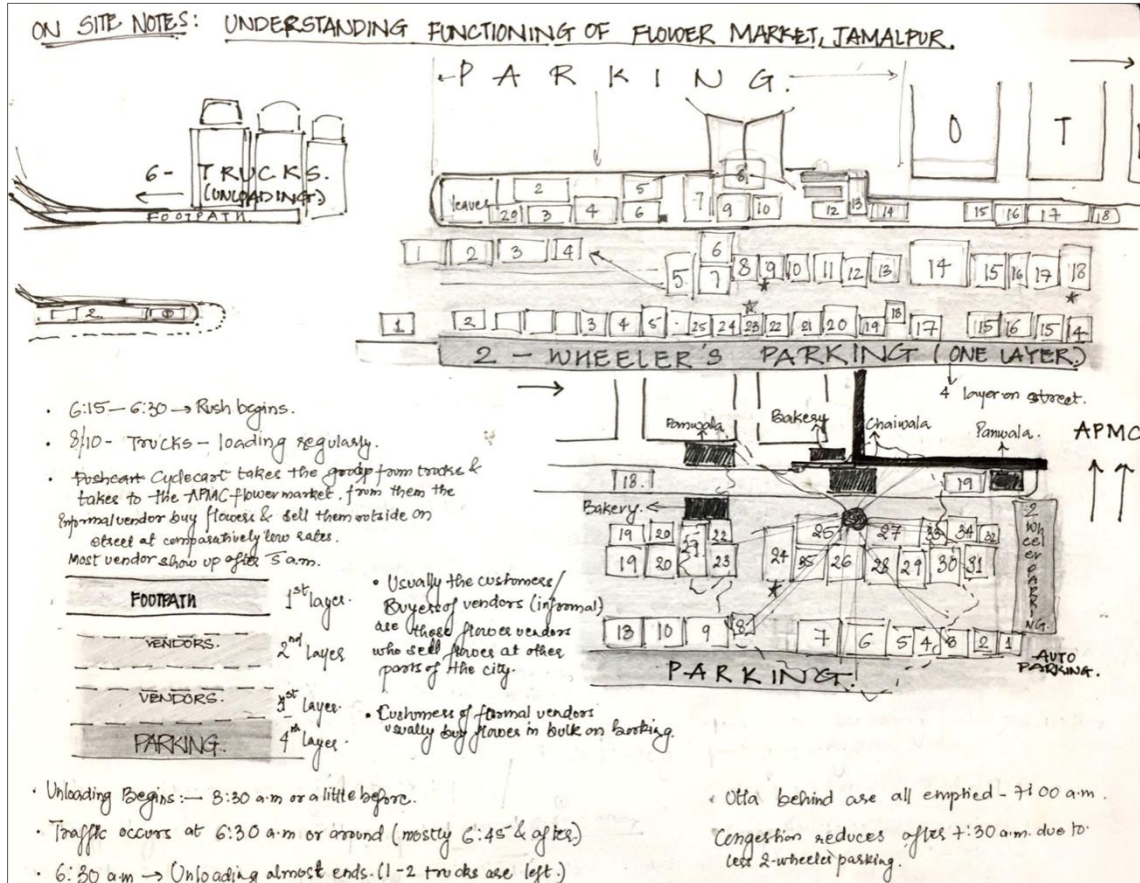 ON SITE NOTES: UNDERSTANDING FUNCTIONING OF FLOWER MARKET, JAMALPUR.
PARKING.
6- TRUCKS.
(UNLOADING).
FOOTPATH
O T
leaves 2 5 8
29 3 4 6 7 9 10 12 13 14 15 16 17 18
1 2 3 4 6
5 7 8 9 10 11 12 13 14 15 16 17 18
2
1 2 3 4 5 25 24 23 22 21 20 19 18 17 15 16 15 4
2 - WHEELER'S PARKING (ONE LAYER)
4 layer on street.
Panwala Bakery Chaiwala Panwala. APMC
18. 19
Bakery.
19 20 21 22 25 27 33 34 32
19 20 23 24 35 26 28 29 30 31
2 wheeler PARKING.
13 10 9 8 7 6 5 4 3 2 1
PARKING.
AUTO
PARKING.
· 6:15 - 6:30 → Rush begins.
· 8/10 - Trucks - loading regularly.
· Cyclecart takes the from trucks &
takes to the APMC flower market, from them the
Informal vendor buy flowers & sell them outside on
street at comparatively low rates.
Most vendor show up after 5 am.
FOOTPATH 1st layer.
VENDORS. 2nd layer
VENDORS. 3st layer.
PARKING. 4th layer.
· Usually the customers/
Buyers of vendors (informal)
are those flower vendors
who sell flower at other
parts of the city.
· Customers of formal vendors
usually buy flower in bulk on
· Unloading Begins:- 3:30 a.m or a little before.
· Traffic occurs at 6:30 a.m or around (mostly 6:45 & after)
· 6:30 a.m → Unloading almost ends. (1-2 trucks are left.)
· Otta behind are all emptied - 7:00 a.m.
Congestion reduces after 7:30 a.m. due to
less 2-wheeler parking.